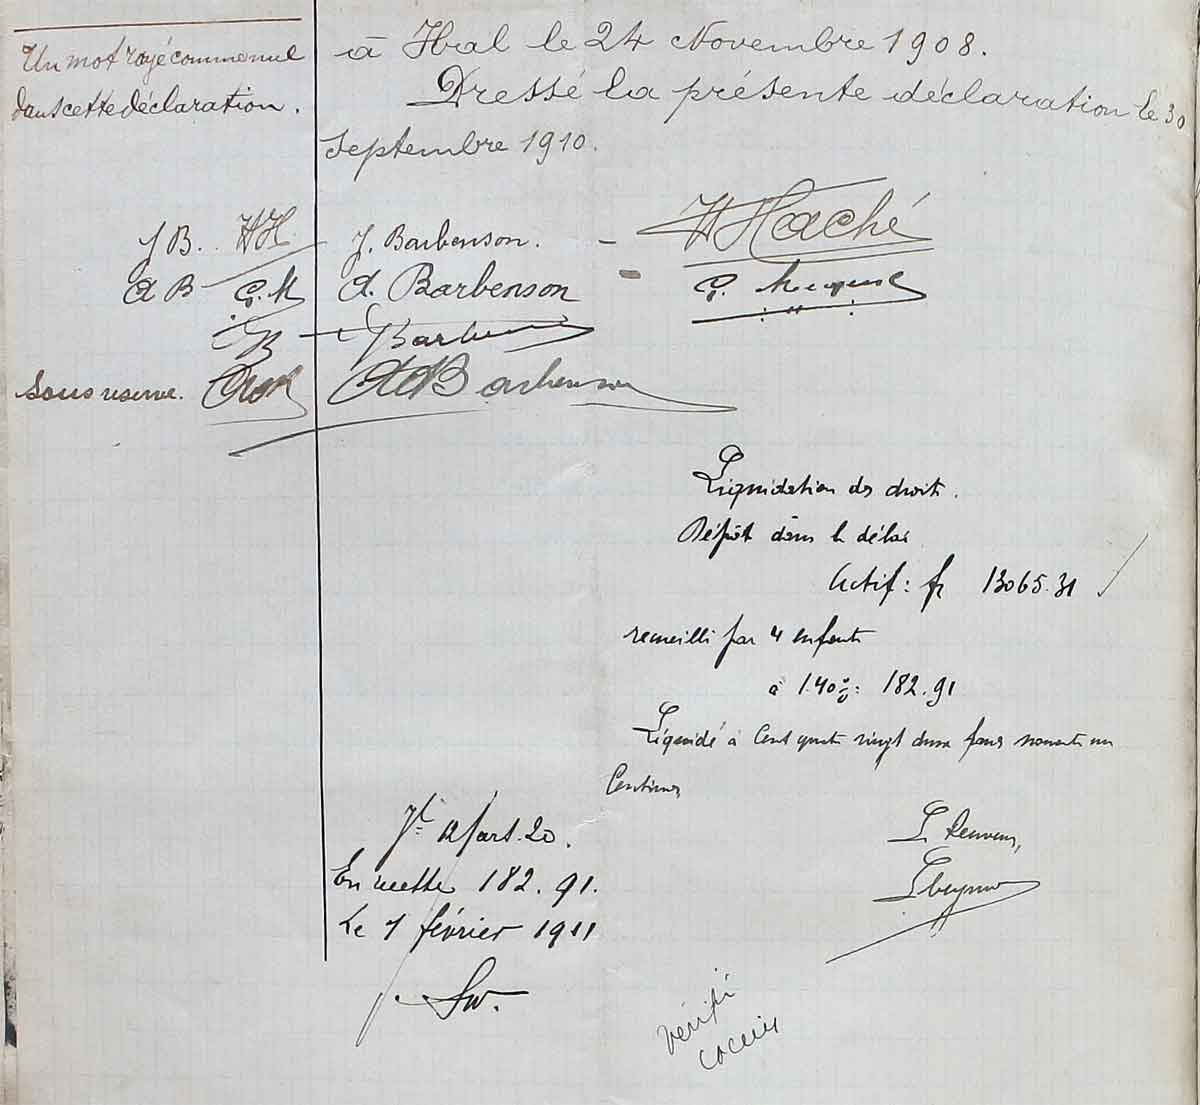 Un mot rayé comme nul
dans cette déclaration.
à Hal le 24 Novembre 1908.
Dressé la présente déclaration le 30
septembre 1910.
J B. H H.
J. Barbenson.
H Haché
A B
A. Barbenson
B
Barbenson
sous reserve.
Barbenson
Liquidation des droits.
Dépôt dans le délai
Actif : fr 13065.31
recueilli par 4 enfants
à 1.40 % : 182.91
Liquidé à Cent quatre vingt deux francs nonante un
Centimes
Le Receveur,
art. 20.
En recette 182.91.
Le 7 février 1911
vérifié